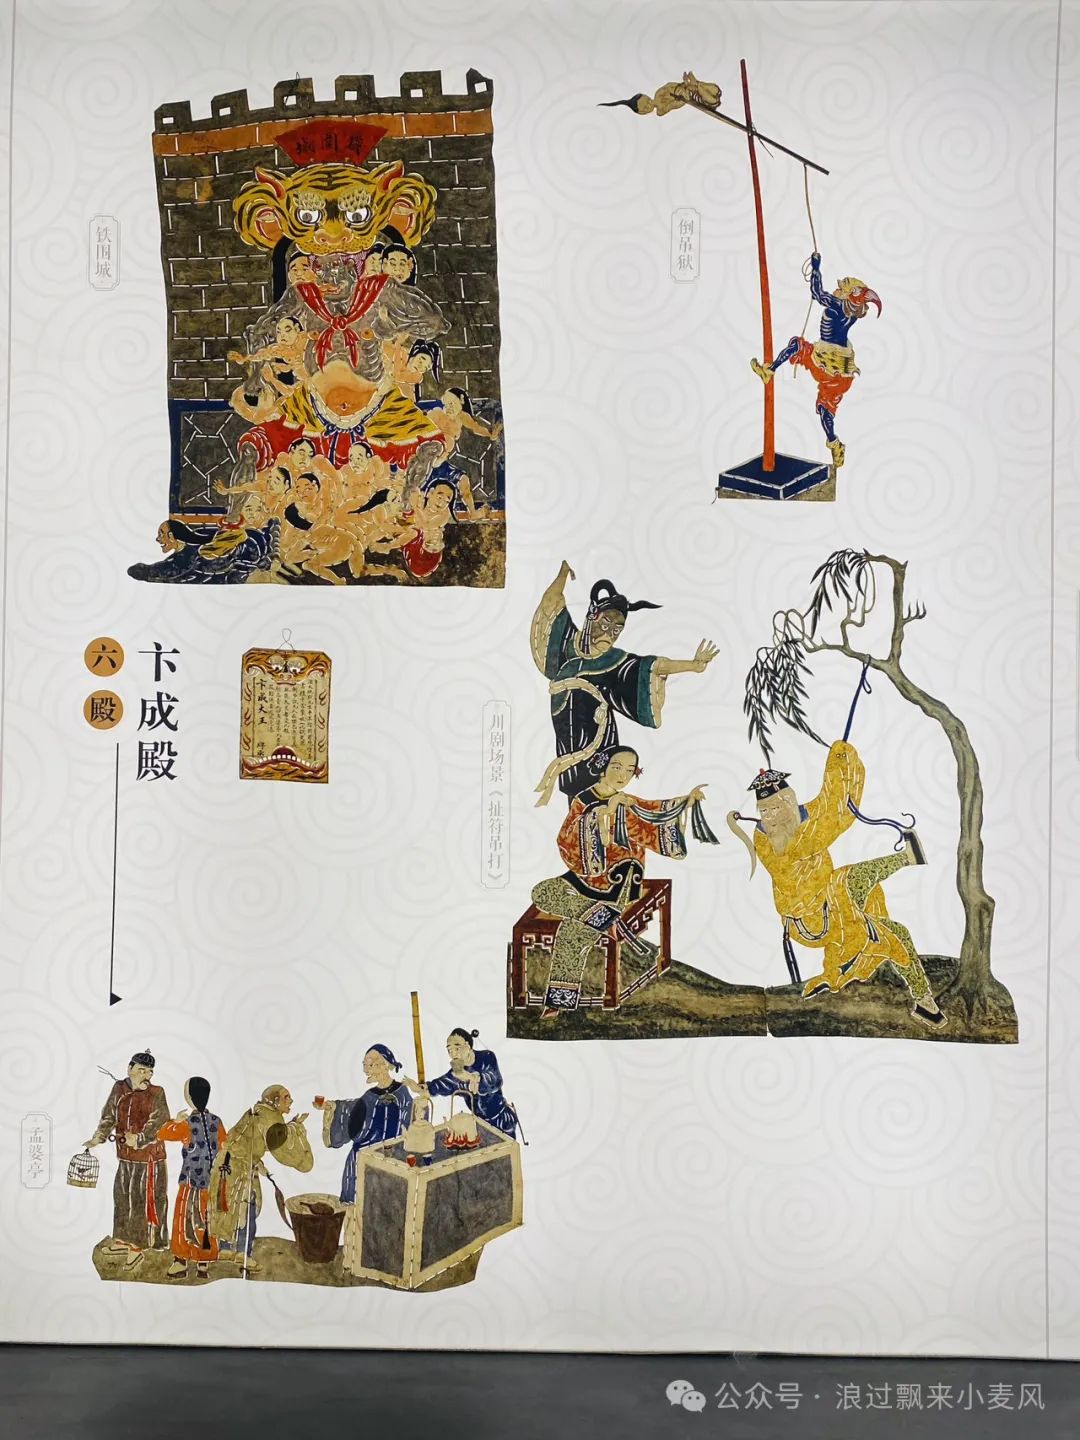 鐵圍城
铁围城
倒吊狱
六殿
卞成殿
卞成大王
川剧场景《扯符吊打》
孟婆亭
公众号·浪过飘来小麦风